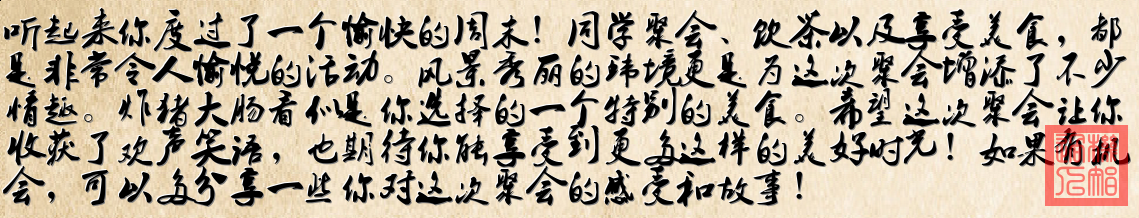 听起来你度过了一个愉快的周末！同学聚会、饮茶以及享受美食，都
是非常令人愉悦的活动。风景秀丽的环境更是为这次聚会增添了不少
情趣。炸猪大肠看似是你选择的一个特别的美食。希望这次聚会让你
收获了欢声笑语，也期待你能享受到更多这样的美好时光！如果有机
会，可以多分享一些你对这次聚会的感受和故事！